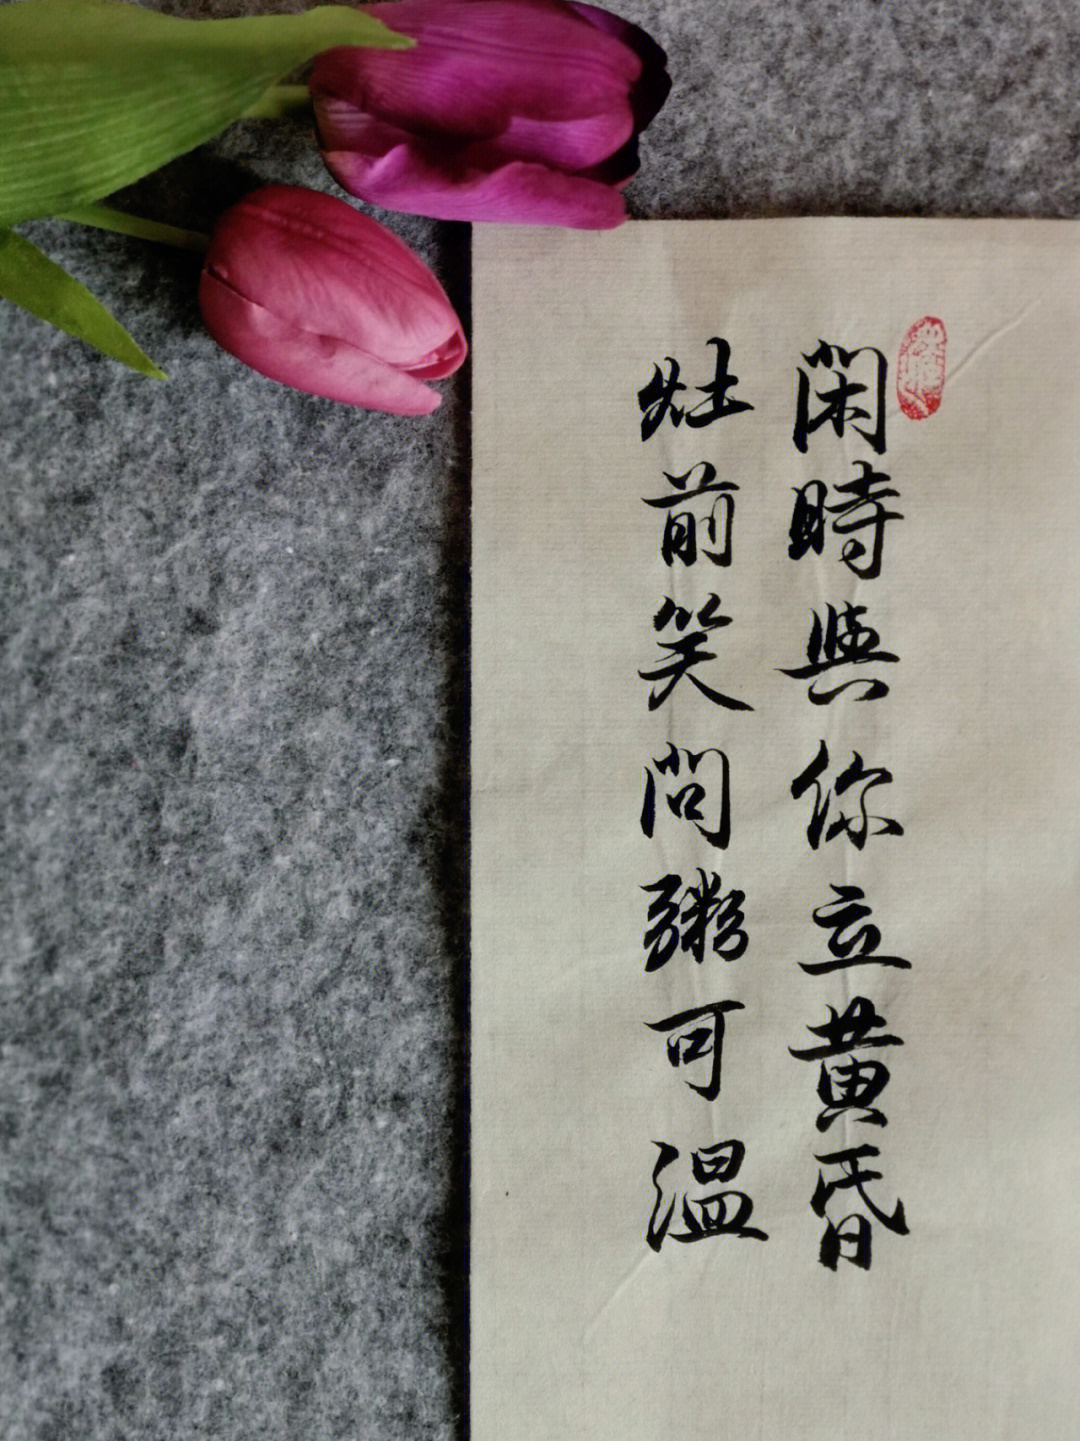 閑時與你立黄昏
灶前笑問粥可温